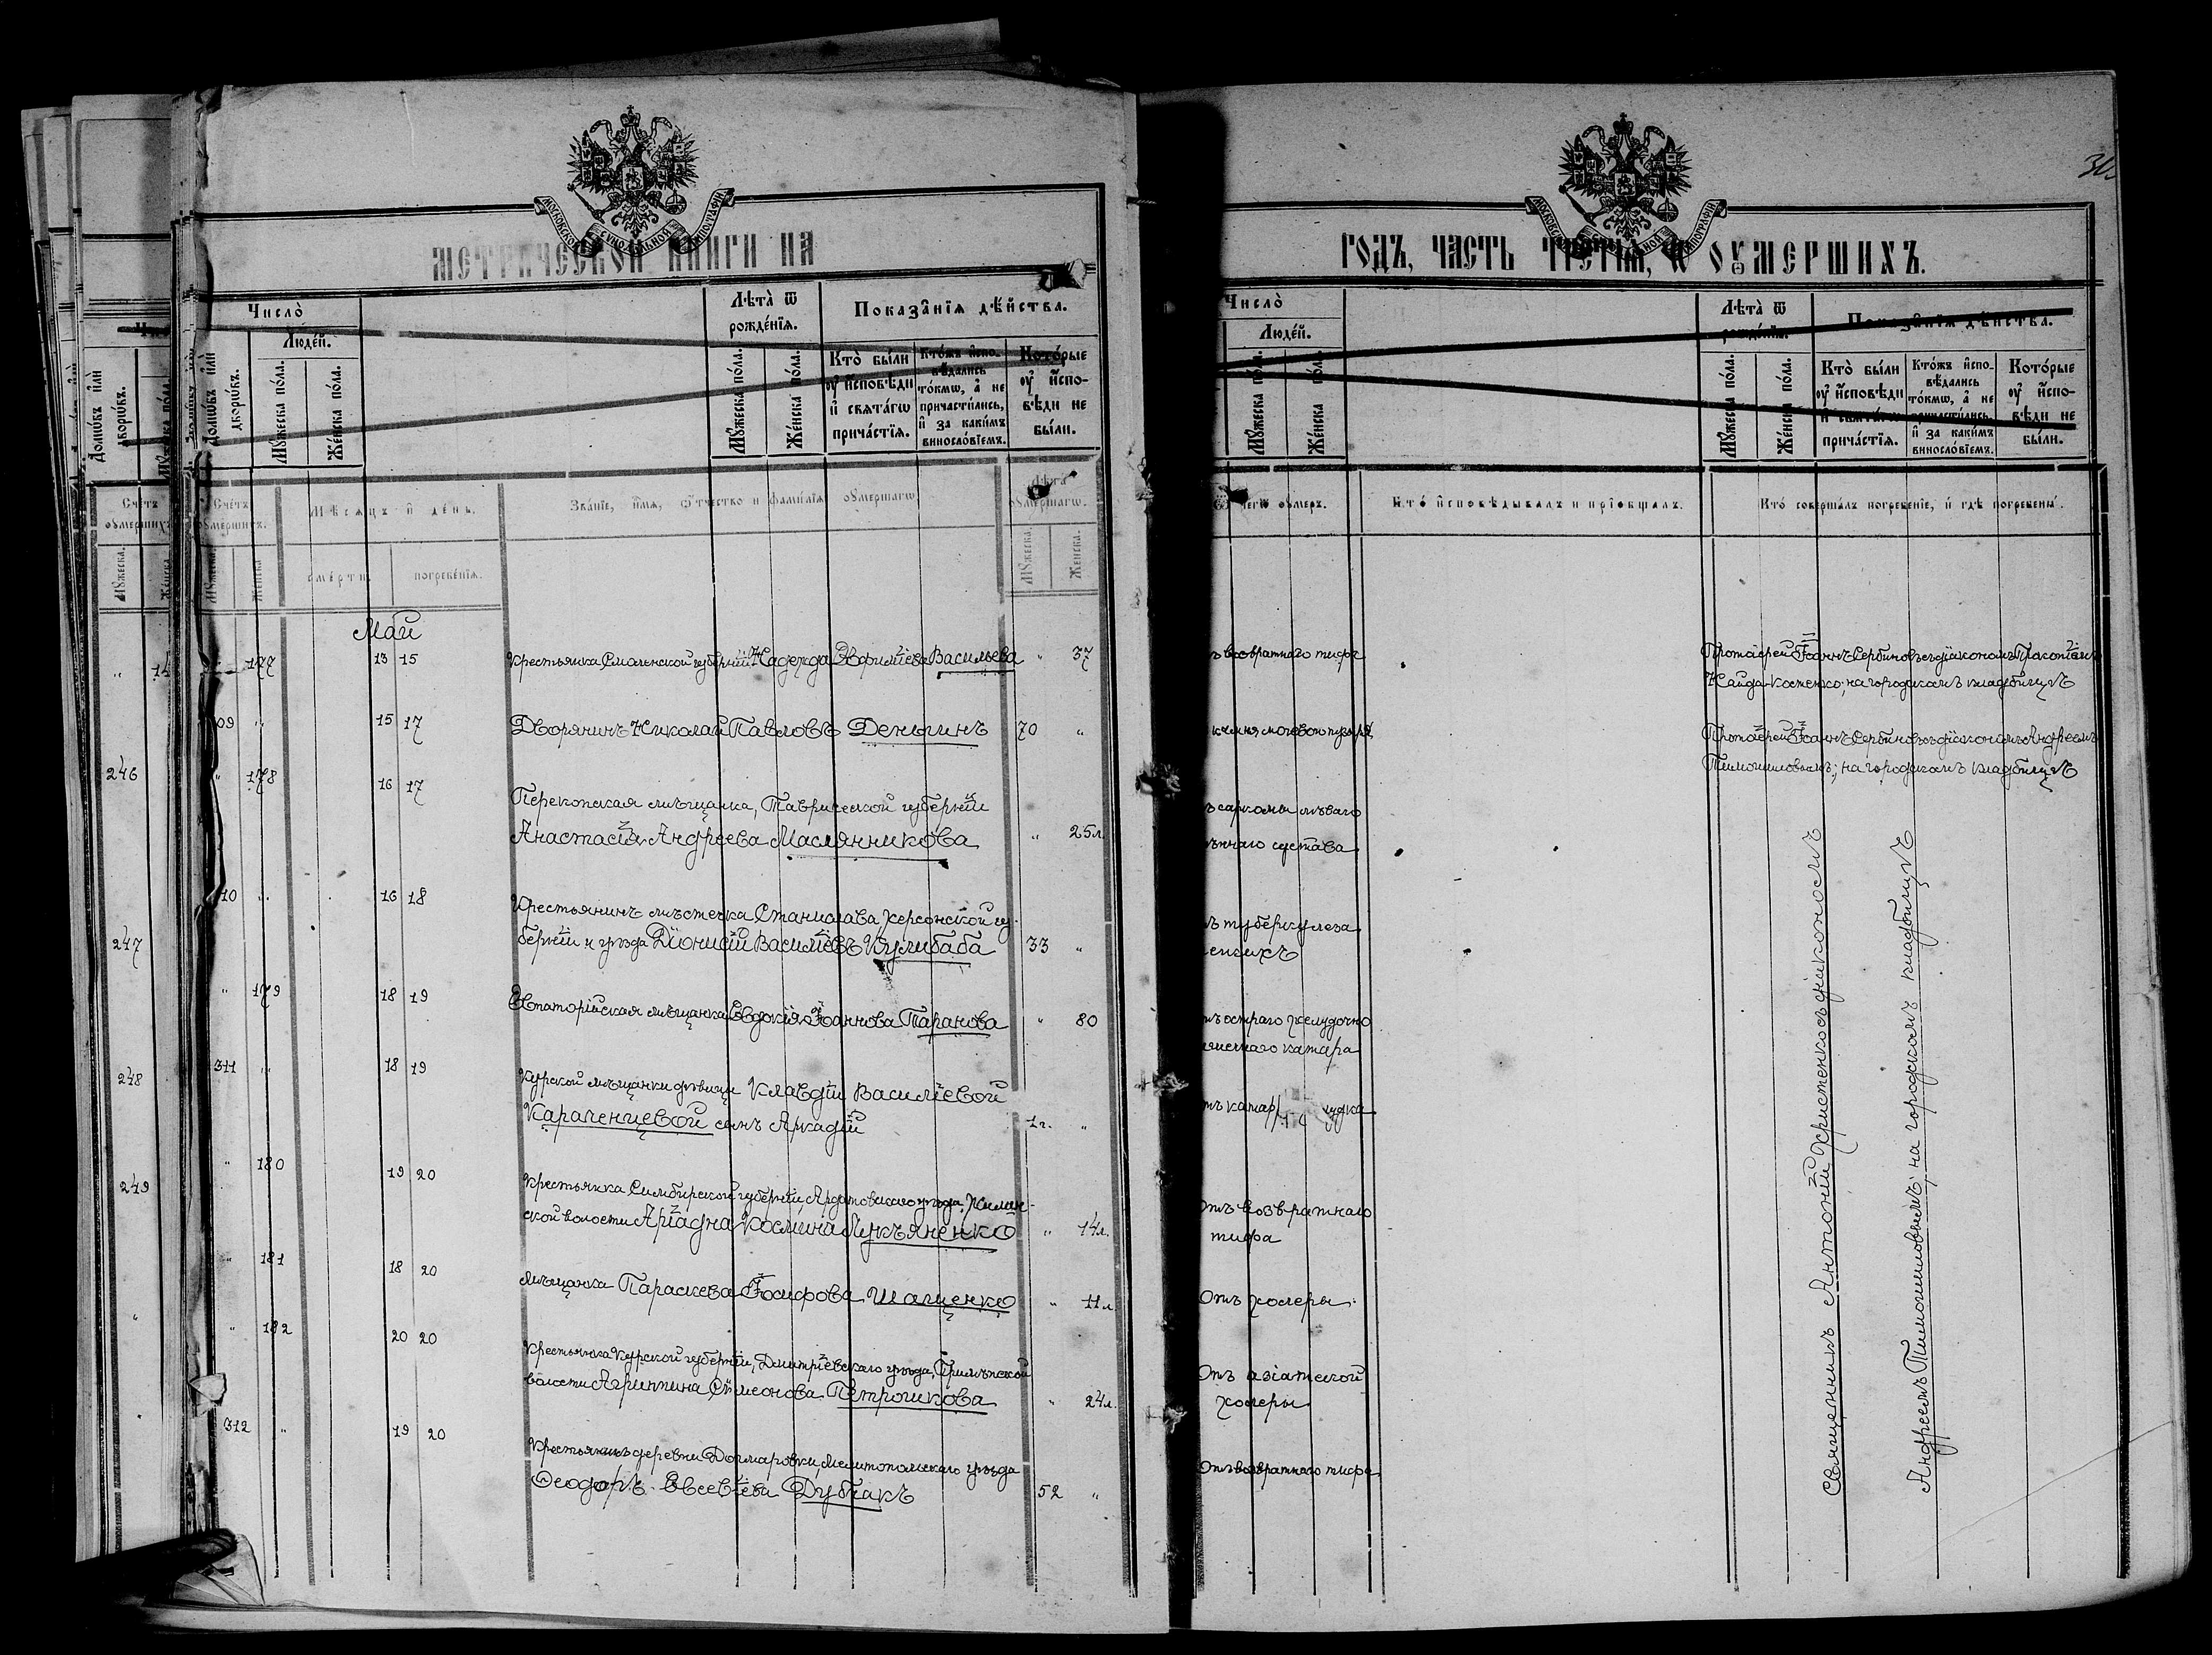 МЕТРИЧЕСКОЙ КНИГИ НА
ГОДЪ, ЧАСТЬ ТРЕТІЯ, Ѡ ОУМЕРШИХЪ.
Число̀
Лѣта̀ ѿ рожде́нїѧ.
Показа̑нїѧ дѣ́йства.
Люде́й.
До́мѡвъ и҆лѝ дворѡ́въ.
Мꙋ́жеска по́ла.
Же́нска по́ла.
Кто̀ бы́ли ᲂу҆ и҆́сповѣди и҆ свѧта́гѡ прича́стїѧ.
Кто́жъ и҆спо-вѣ́дались то́кмѡ, а҆ не причасти́лись, и҆ за каки́мъ виносло́вїемъ.
Кото́рые ᲂу҆ и҆́спо-вѣди не бы́ли.
Счетъ ᲂумершихъ.
Мѣсяцъ и день.
смерти
погребенїя.
Званїе, имя, отчество и фамилїя ᲂумершагѡ.
Лѣта ᲂумершагѡ.
Мꙋжеска.
Женска.
чегѡ ᲂумеръ.
Кто исповѣдывалъ и прїобщалъ.
Кто совершалъ погребенїе, и гдѣ погребены.
Май
177 13 15 Крестьянка Смоленской губерніи Надежда Ефиміева Васильева " 37
възвратнаго тифа
Протоіерей Іоаннъ Сербиновъ съ діакономъ Прокопіемъ
Найда-Коженко; на городскомъ кладбищѣ
09 " 15 17 Дворянинъ Николай Павловъ Деньгинъ 70 "
камня мочевого пузыря
Протоіерей Іоаннъ Сербиновъ съ діакономъ Андреемъ
Тимошиловымъ; на городскомъ кладбищѣ
246
" 178 16 17 Перекопская мѣщанка, Таврической губерніи
Анастасія Андреева Маслянникова " 25 л
ъ саркомы лѣваго
ннаго сустава
10 " 16 18 Крестьянинъ мѣстечка Станислава Херсонской гу-
берніи и уѣзда Діонисій Василіевъ Кулибаба 33 "
ъ туберкулеза
легкихъ
247
" 179 18 19 Евпаторійская мѣщанка Евдокія Іоаннова Таранова " 80
тъ остраго желудочно
кишечнаго катара
248
311 " 18 19 Курской мѣщанки дѣвицы Клавдіи Василіевой
Караченцевой сынъ Аркадій 1 г. "
тъ катар
лудка
249
" 180 19 20 Крестьянка Симбирской губерніи, Ардатовскаго уѣзда,
ской волости Аріадна Космина Лукъяненко " 14 л.
Отъ возвратнаго
тифа
" 181 18 20 Мѣщанка Параскева Іосифова Шащенко " 11 л
Отъ холеры.
" 182 20 20 Крестьянка Курской губерніи, Дмитріевскаго уѣзда,
волости Агриппина Симеонова Петрошкова " 24 л.
Отъ азіатской
холеры
312 " 19 20 Крестьянинъ деревни Догмаровки, Мелитопольскаго уѣзда
Ѳеодоръ Евсевіева Дубчакъ 52 "
Отъ возвратнаго тифа
Священникъ Антоній Христенко съ діакономъ
Андреемъ Тимошиловымъ; на городскомъ кладбищѣ